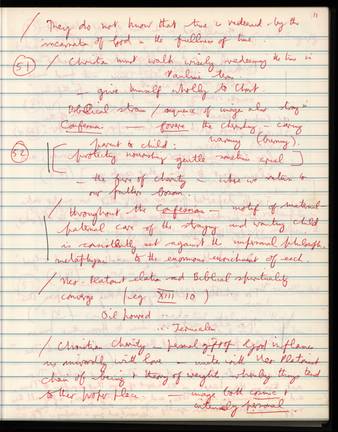 11
/ They do not know that time is redeemed by the
incarnate of God in the fullness of time.
51 / Christian must walk wisely redeeming the time in
Pauline terms
— give himself wholly to Christ
Biblical strain / sequence of image also strong in
Confessions — fovere: the cherishing — caring
parent to child: warming (burning).
52 [ protecting nourishing gentle sometimes cruel ]
— the fire of charity — when we return to
our father's bosom.
/ throughout the Confessions — motif of maternal
paternal care of the straying and wanting child
is constantly set against the impersonal philosophe
metaphysics — to the enormous enrichment of each
/ Neo-Platonist elation and Biblical spirituality
converge (eg XIII 10)
Oil poured ...
... Jerusalem
/ Christian charity — personal gift of God inflames
us inwardly with love — unite with Neo Platonist
chain of being & theory of weight whereby things tend
to their proper place. — image both cosmic &
intensely personal.